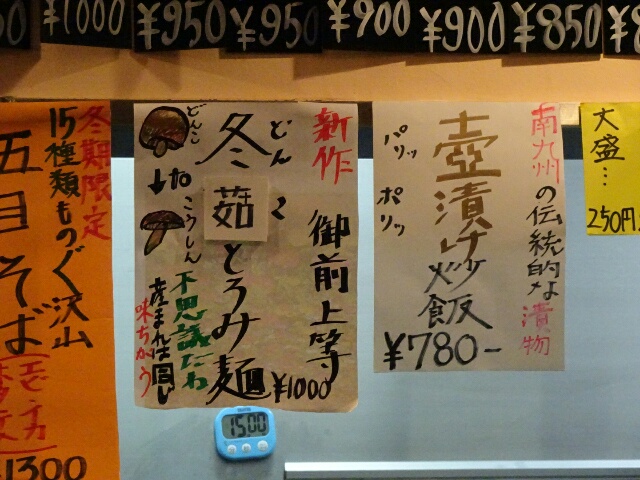 ¥1000
¥950
¥950
¥900
¥900
¥850
冬期限定
15種類もの
ぐ沢山
五目そば
¥1300
新作
御前上等
どんこ
冬菇とろみ麺
¥1000
どんこ
こうしん
不思議だね
産まれは同じ
味ちがう
南九州の伝統的な漬物
壺漬け炒飯
パリッ
ポリッ
¥780-
大盛…
250円
15:00